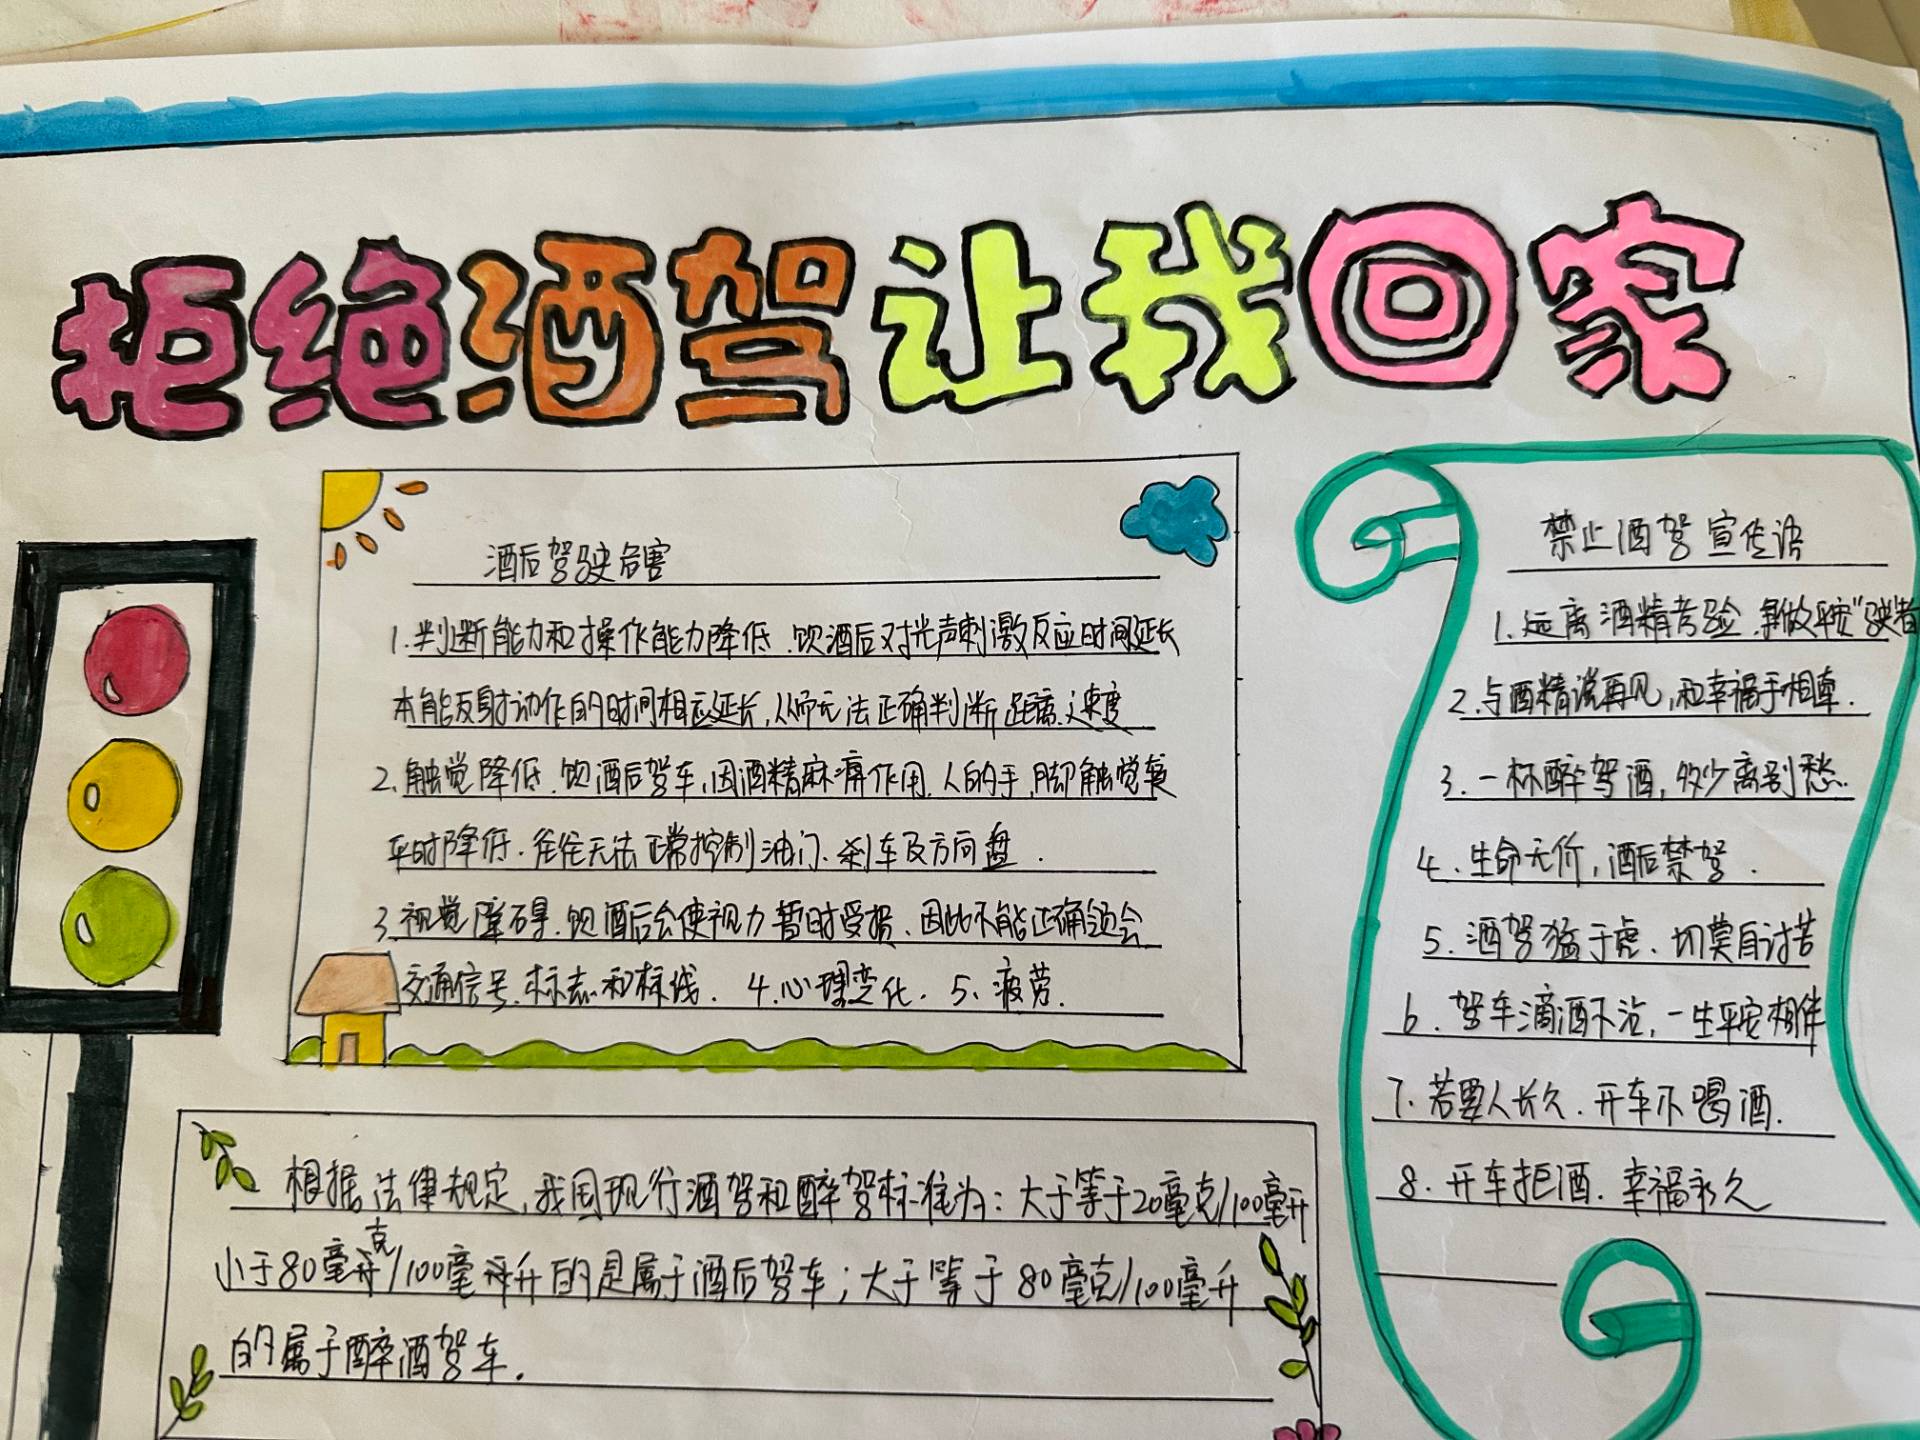 拒绝酒驾让我回家
酒后驾驶危害
1.判断能力和操作能力降低.饮酒后对光声刺激反应时间延长
本能反射动作的时间相应延长,从而无法正确判断距离.速度
2.触觉降低.饮酒后驾车,因酒精麻痹作用.人的手,脚触觉较
平时降低.往往无法正常控制油门.刹车及方向盘.
3.视觉障碍.饮酒后会使视力暂时受损.因此不能正确领会
交通信号.标志和标线. 4.心理变化. 5.疲劳.
根据法律规定,我国现行酒驾和醉驾标准为:大于等于20毫克/100毫升
小于80毫克/100毫升的是属于酒后驾车;大于等于80毫克/100毫升
的属于醉酒驾车.
禁止酒驾宣传语
1.远离酒精考验.争做平安"驶者
2.与酒精说再见,和幸福手相牵.
3.一杯醉驾酒,多少离别愁.
4.生命无价,酒后禁驾.
5.酒驾猛于虎.切莫自讨苦
6.驾车滴酒不沾,一生平安相伴
7.若要人长久.开车不喝酒.
8.开车拒酒.幸福永久